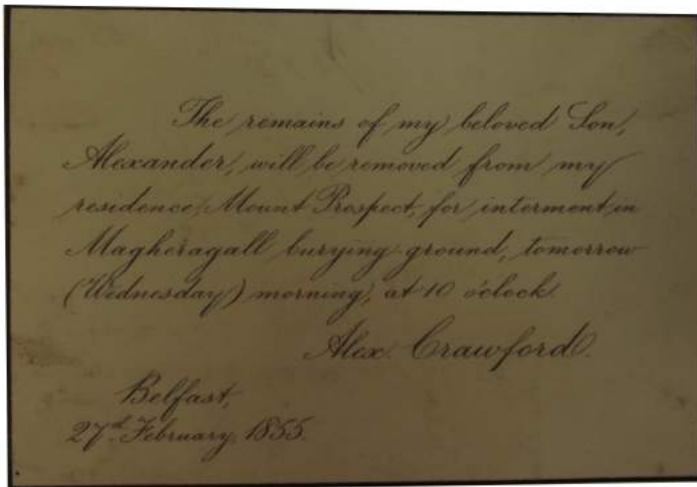 The remains of my beloved Son,
Alexander, will be removed from my
residence, Mount Prospect, for interment in
Magheragall burying ground, tomorrow
(Wednesday) morning, at 10 o'clock.
Alex. Crawford.
Belfast,
27th February, 1855.